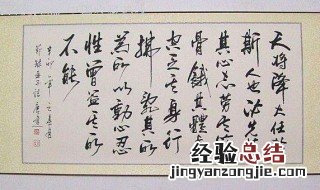 天将降大任於
斯人也必先苦
其心志劳其筋
骨餓其體膚
空乏其身行
拂亂其所
為所以動心忍
性曾益其所
不能
经验总结